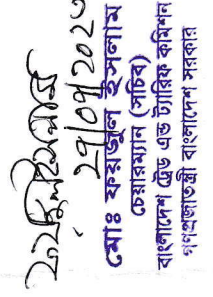 ২৭/০৭/২০২৩
মোঃ ফয়জুল ইসলাম
চেয়ারম্যান (সচিব)
বাংলাদেশ ট্রেড এন্ড ট্যারিফ কমিশন
গণপ্রজাতন্ত্রী বাংলাদেশ সরকার